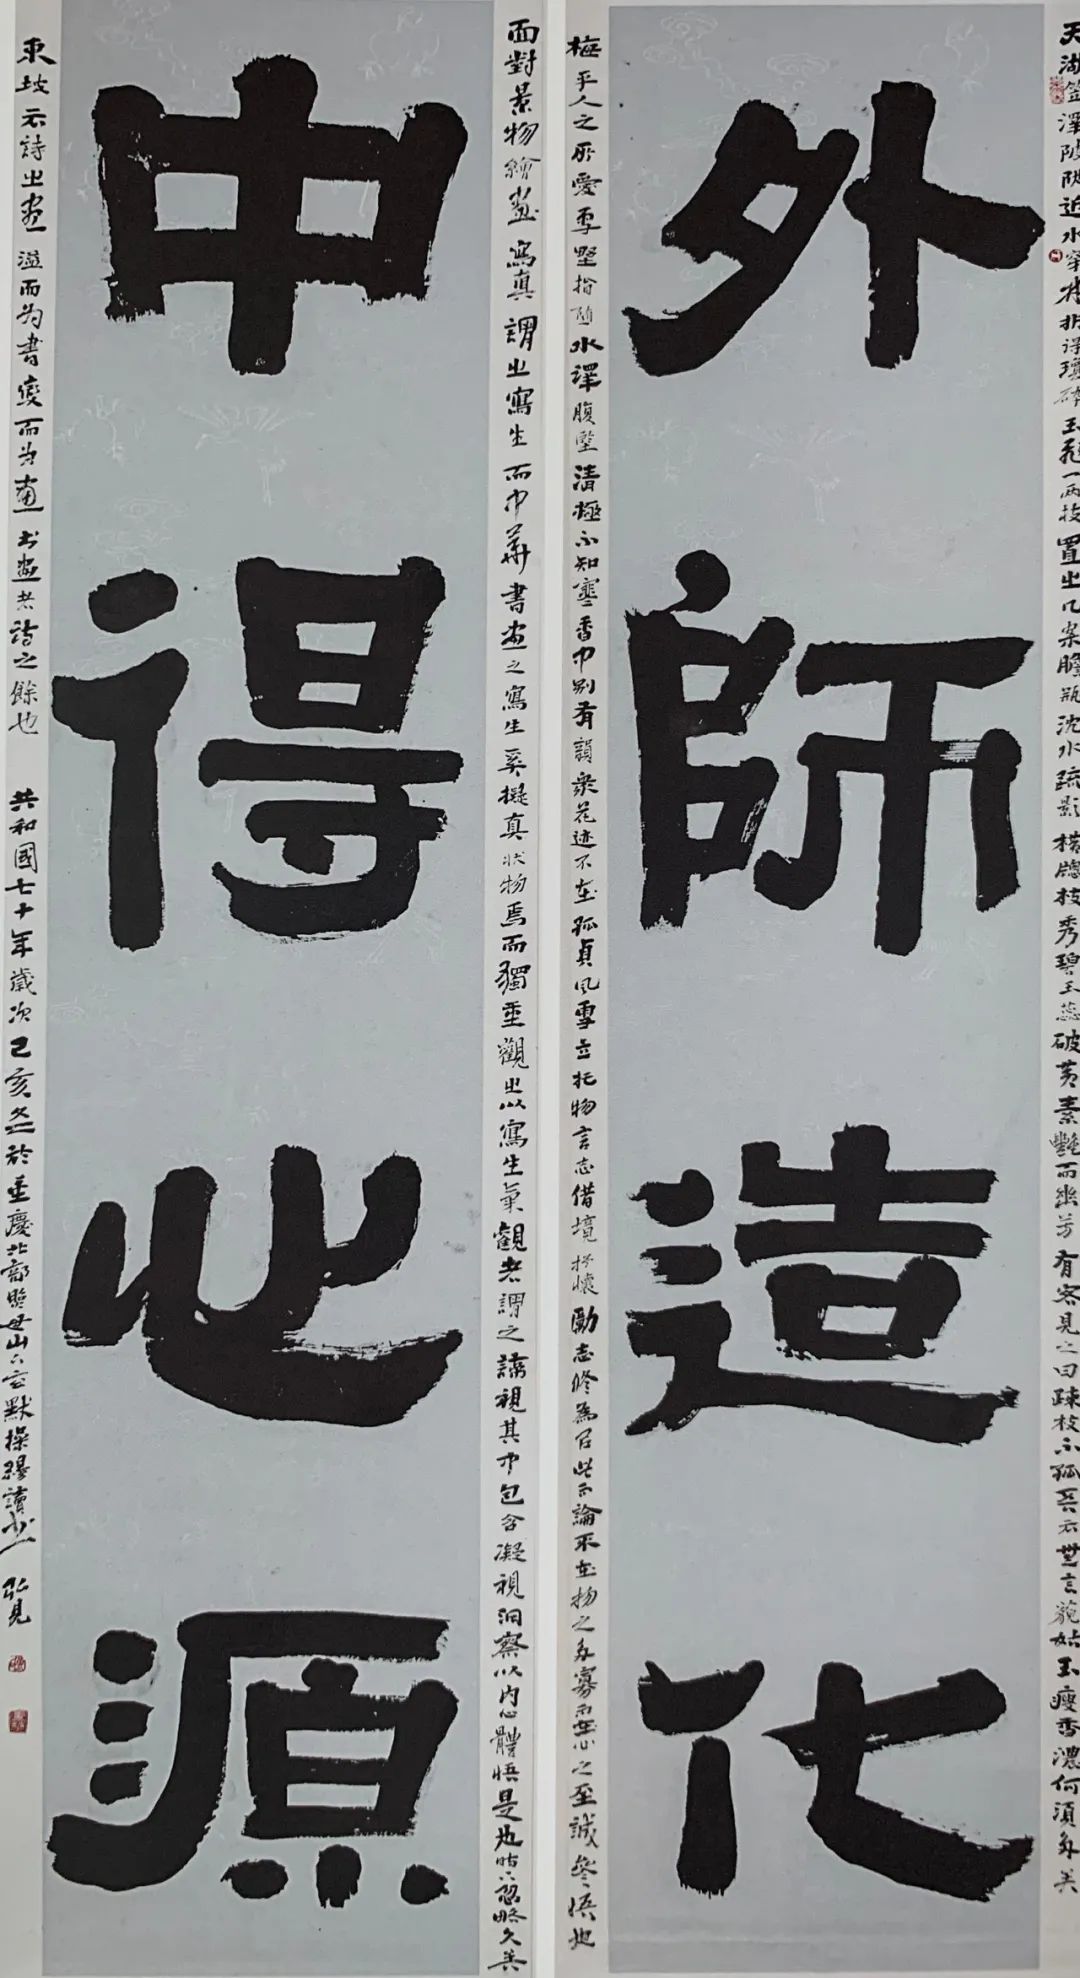 外師造化
中得心源
天湖 澤陂 近水 玉 一兩枝置之几案膽瓶沈水疏影橫牕枝秀碧玉蕊破黃素艷而幽芳有客見之曰疎枝不孤吾云世言藐姑玉瘦香濃何須多矣
梅乎人之所愛 堅 水澤腹堅清極不知寒香中別有韻衆花迹不在孤貞風雪立托物言志借境抒懷勵志修為 此不論不在物之多寡而在心之至誠參悟也
面對景物繪畫寫真謂之寫生而中華書畫之寫生奚擬真狀物焉而獨重觀之以寫生氣觀者謂之諦視其中包含凝視洞察以内心體悟是也 忽略久矣
東坡云詩之畫溢而為書變而為畫書畫者詩之餘也
共和國七十年歲次己亥冬於重慶北部照母山 默操 讀 弘見